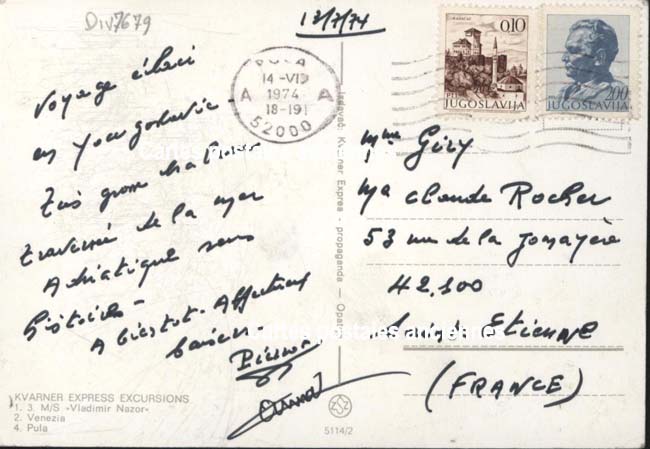 Div7679
13/7/74
GRADAČAC
0,10
JUGOSLAVIJA
2,00
JUGOSLAVIJA
PULA
14-VII
1974
18-19
A A
52000
Voyage
en Yougoslavie
grosse chaleur
traversée de la mer
Adriatique sans
histoires -
A bientôt. Affectueux
Pierrot
KVARNER EXPRESS EXCURSIONS
1. 3. M/S »Vladimir Nazor«
2. Venezia
4. Pula
Izdavač: Kvarner Expres - propaganda — Opatija
5114/2
Mme Giry
Ma claude Rocher
53 rue de la
42.100
Etienne
(FRANCE)
cartes postales anciennes
cartes postales anciennes